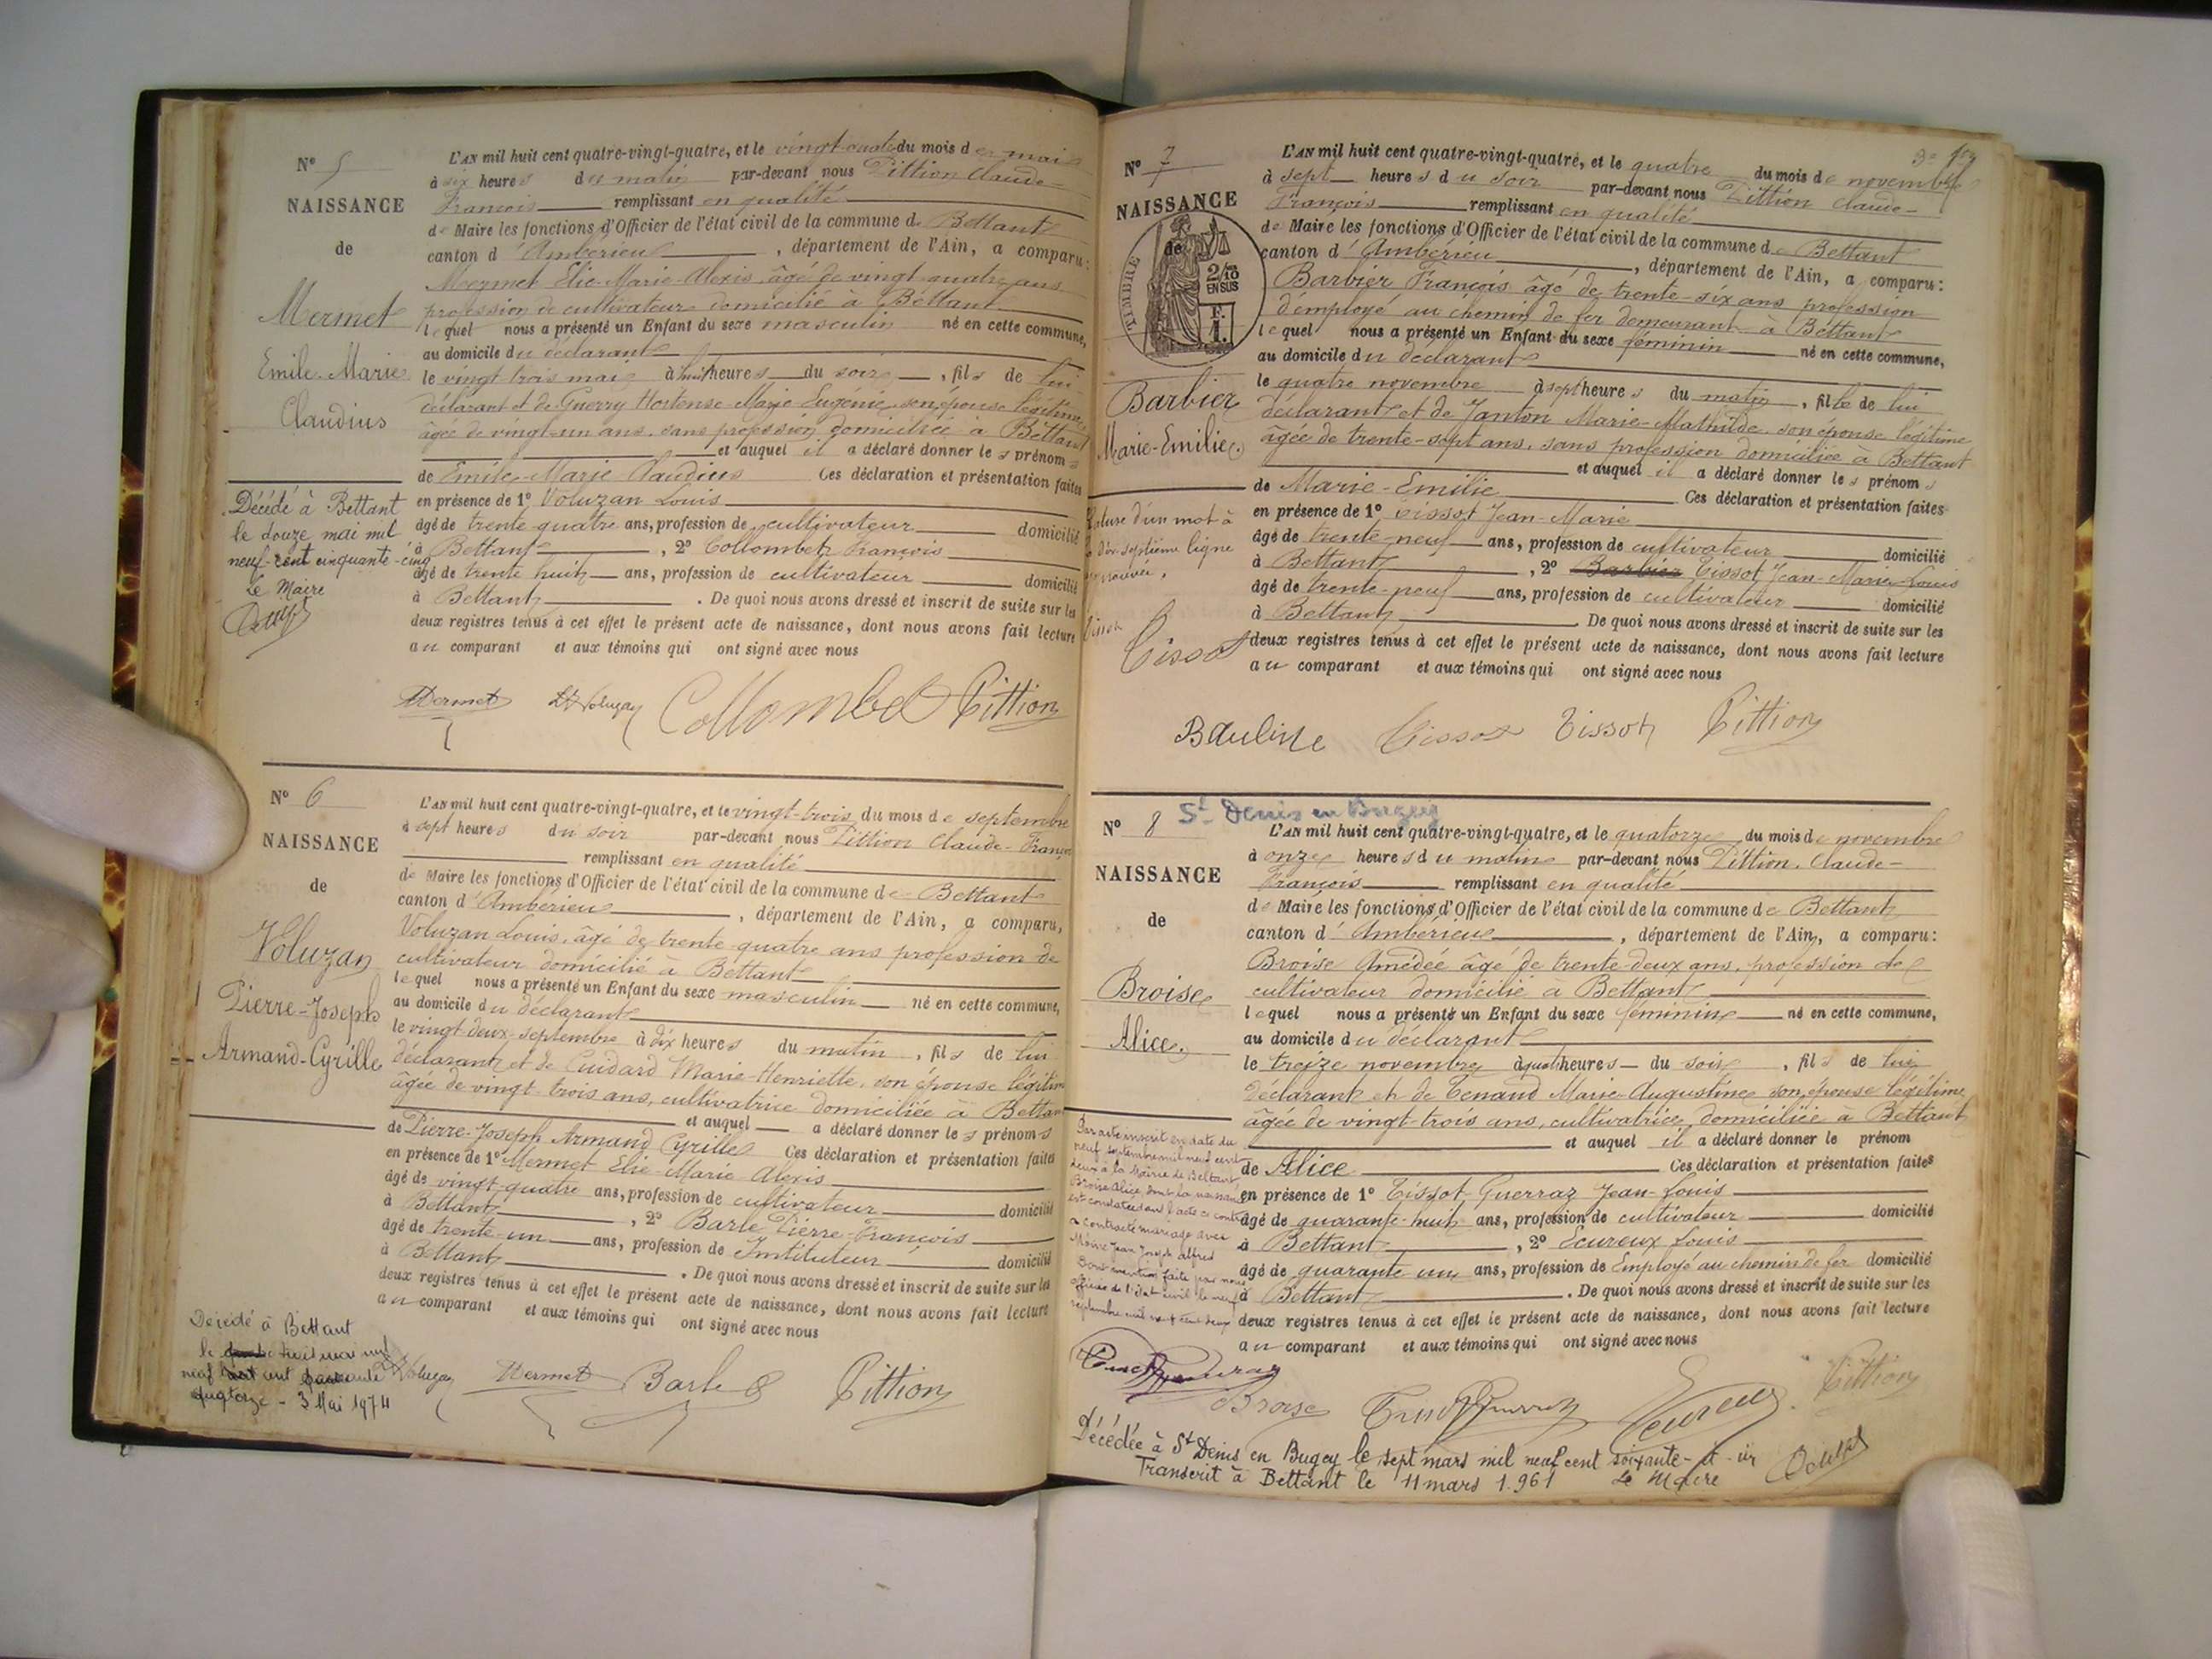 N° 5
NAISSANCE
de
Mermet
Emile-Marie
Claudius
Décédé à Bettant
le douze mai mil
neuf-cent cinquante-cinq
Le Maire
L'AN mil huit cent quatre-vingt-quatre, et le vingt- du mois de mai
à six heures du matin par-devant nous Pittion Claude-
François remplissant en qualité
de Maire les fonctions d'Officier de l'état civil de la commune de Bettant
canton d'Ambérieu, département de l'Ain, a comparu:
Mermet Elie-Marie-Alexis, âgé de vingt-quatre ans
profession de cultivateur domicilié à Bettant
lequel nous a présenté un Enfant du sexe masculin né en cette commune,
au domicile du déclarant
le vingt trois mai à huit heures du soir, fils de lui
déclarant et de Guerry Hortense Marie Eugénie, son épouse légitime
âgée de vingt-un ans, sans profession domiciliée à Bettant
et auquel il a déclaré donner les prénoms
de Emile-Marie-Claudius Ces déclaration et présentation faites
en présence de 1° Voluzan Louis
âgé de trente-quatre ans, profession de cultivateur domicilié
à Bettant, 2° Collombet François
âgé de trente huit ans, profession de cultivateur domicilié
à Bettant. De quoi nous avons dressé et inscrit de suite sur les
deux registres tenus à cet effet le présent acte de naissance, dont nous avons fait lecture
au comparant et aux témoins qui ont signé avec nous
Mermet Voluzan Collombet Pittion
N° 6
NAISSANCE
de
Voluzan
Pierre-Joseph
Armand-Cyrille
L'AN mil huit cent quatre-vingt-quatre, et le vingt-trois du mois de septembre
à sept heures du soir par-devant nous Pittion Claude-François
remplissant en qualité
de Maire les fonctions d'Officier de l'état civil de la commune de Bettant
canton d'Ambérieu, département de l'Ain, a comparu,
Voluzan Louis, âgé de trente-quatre ans profession de
cultivateur domicilié à Bettant
lequel nous a présenté un Enfant du sexe masculin né en cette commune,
au domicile du déclarant
le vingt-deux septembre à dix heures du matin, fils de lui
déclarant et de Cuidard Marie-Henriette, son épouse légitime
âgée de vingt-trois ans, cultivatrice domiciliée à Bettant
et auquel a déclaré donner les prénoms
de Pierre-Joseph Armand Cyrille Ces déclaration et présentation faites
en présence de 1° Mermet Elie-Marie Alexis
âgé de vingt-quatre ans, profession de cultivateur domicilié
à Bettant, 2° Barle Pierre-François
âgé de trente-un ans, profession de Instituteur domicilié
à Bettant. De quoi nous avons dressé et inscrit de suite sur les
deux registres tenus à cet effet le présent acte de naissance, dont nous avons fait lecture
au comparant et aux témoins qui ont signé avec nous
Décédé à Bettant
le trois mai mil
neuf cent soixante
quatorze - 3 Mai 1974
Voluzan Mermet Barle Pittion
N° 7
NAISSANCE
de
TIMBRE
2/10
EN SUS
F.
1.
Barbier
Marie-Emilie.
Rature d'un mot à
la dix-septième ligne
approuvée.
Tissot
Tissot
L'AN mil huit cent quatre-vingt-quatre, et le quatre du mois de novembre
à sept heures du soir par-devant nous Pittion Claude-
François remplissant en qualité
de Maire les fonctions d'Officier de l'état civil de la commune de Bettant
canton d'Ambérieu, département de l'Ain, a comparu:
Barbier François âgé de trente-six ans profession
d'employé au chemin de fer demeurant à Bettant
lequel nous a présenté un Enfant du sexe féminin né en cette commune,
au domicile du déclarant
le quatre novembre à sept heures du matin, fille de lui
déclarant et de Janton Marie-Mathilde son épouse légitime
âgée de trente-sept ans, sans profession domiciliée à Bettant
et auquel il a déclaré donner les prénoms
de Marie-Emilie Ces déclaration et présentation faites
en présence de 1° Tissot Jean-Marie
âgé de trente-neuf ans, profession de cultivateur domicilié
à Bettant, 2° Barbier Tissot Jean-Marie-Louis
âgé de trente-neuf ans, profession de cultivateur domicilié
à Bettant. De quoi nous avons dressé et inscrit de suite sur les
deux registres tenus à cet effet le présent acte de naissance, dont nous avons fait lecture
au comparant et aux témoins qui ont signé avec nous
Tissot Tissot Pittion
St Denis en Bugey
N° 8
NAISSANCE
de
Broise
Alice.
Par acte inscrit en date du
neuf septembre mil neuf cent
deux à la Mairie de Bettant,
Broise Alice, dont la naissance
est constatée dans l'acte ci contre
a contracté mariage avec
Jean Joseph Alfred
Dont mention faite par nous
officier de l'état civil le neuf
septembre mil neuf cent deux
L'AN mil huit cent quatre-vingt-quatre, et le quatorze du mois de novembre
à onze heures du matin par-devant nous Pittion, Claude-
François remplissant en qualité
de Maire les fonctions d'Officier de l'état civil de la commune de Bettant
canton d'Ambérieu, département de l'Ain, a comparu:
Broise Amédée âgé de trente-deux ans, profession de
cultivateur domicilié à Bettant
lequel nous a présenté un Enfant du sexe féminin né en cette commune,
au domicile du déclarant
le treize novembre à quatre heures du soir, fils de lui
déclarant et de Tenand Marie-Augustine son épouse légitime
âgée de vingt-trois ans, cultivatrice, domiciliée à Bettant
et auquel il a déclaré donner le prénom
de Alice Ces déclaration et présentation faites
en présence de 1° Tissot-Guerraz Jean-Louis
âgé de quarante-huit ans, profession de cultivateur domicilié
à Bettant, 2° Ecureux Louis
âgé de quarante un ans, profession de Employé au chemin de fer domicilié
à Bettant. De quoi nous avons dressé et inscrit de suite sur les
deux registres tenus à cet effet le présent acte de naissance, dont nous avons fait lecture
au comparant et aux témoins qui ont signé avec nous
Broise Ecureux Pittion
Décédée à St Denis en Bugey le sept mars mil neuf cent soixante-et-un
Transcrit à Bettant le 11 mars 1.961 Le Maire